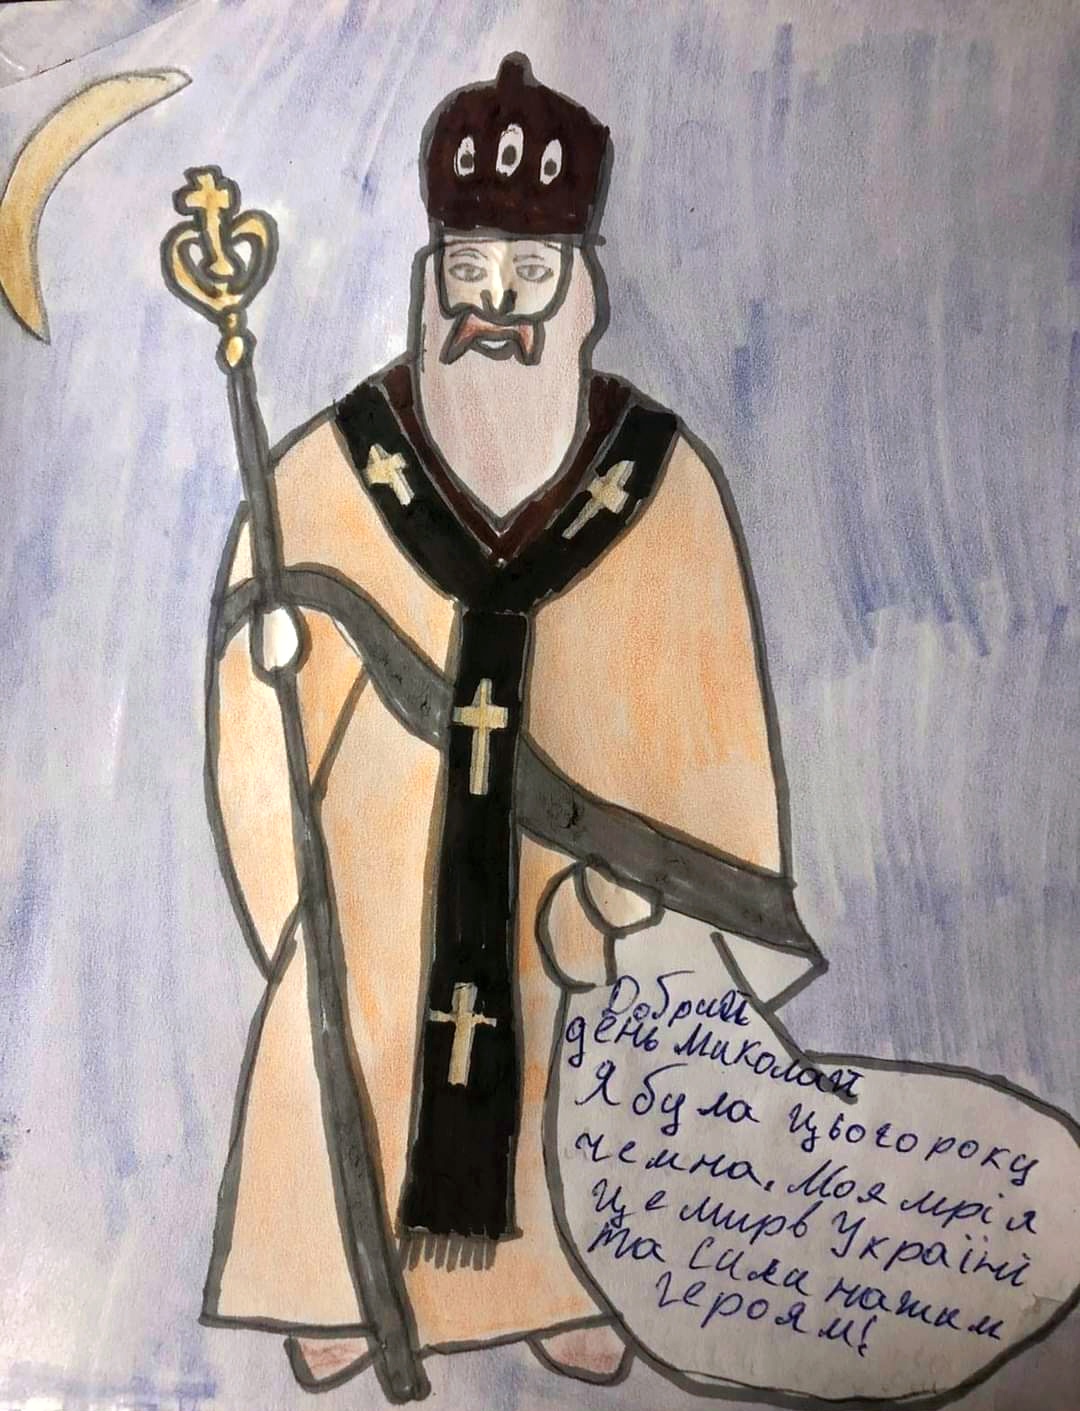 Добрий
день Миколай
Я була цього року
чемна. Моя мрія
це мир в Україні
та сили нашим
героям!